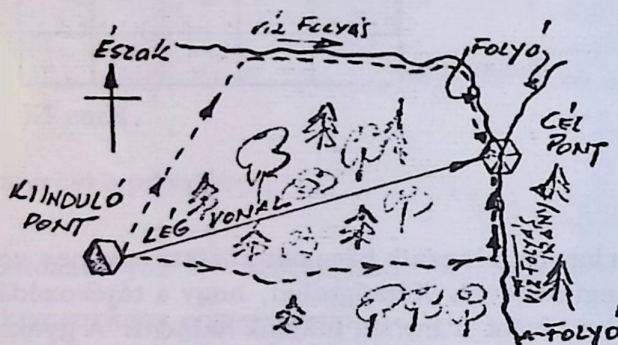 Észak
víz Folyás
FOLYÓ
CÉL
PONT
KIINDULÓ
PONT
LÉG VONAL
VÍZ FOLYÁS
IRÁNY
FOLYÓ